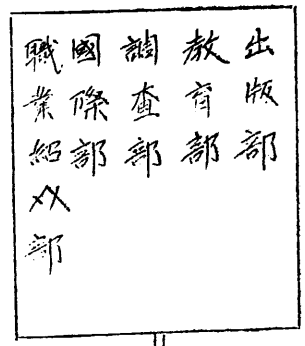 出版部
教育部
調查部
國際部
職業紹介部